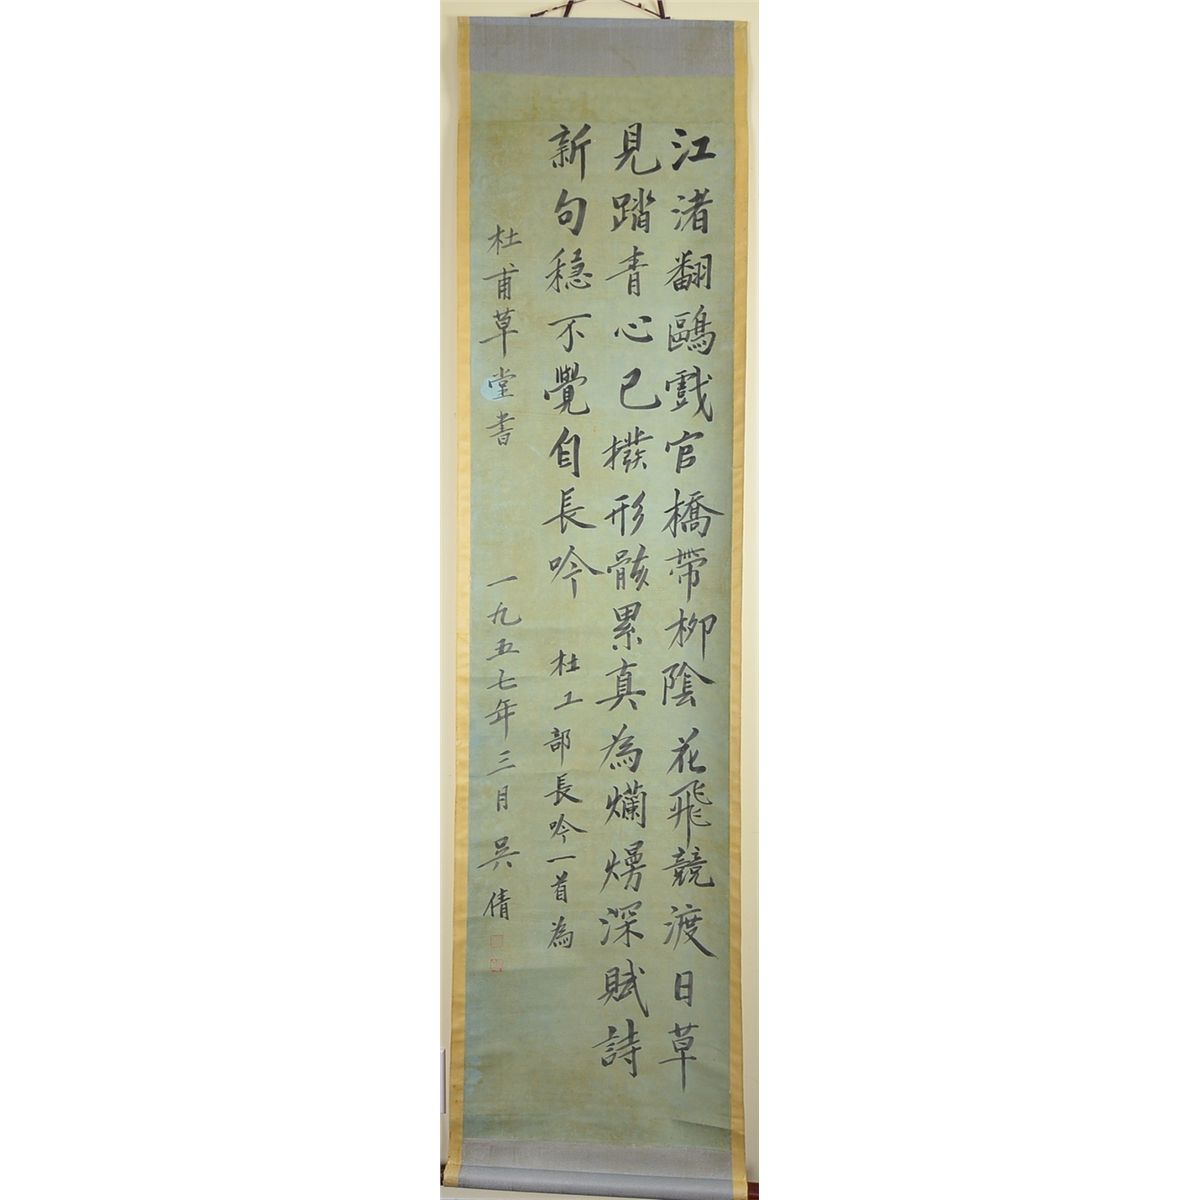 江渚翻鷗戲官橋帶柳陰花飛競渡日草
見踏青心已撥形骸累真為爛熳深賦詩
新句穩不覺自長吟 杜工部長吟一首為
杜甫草堂書 一九五七年三月 吳倩